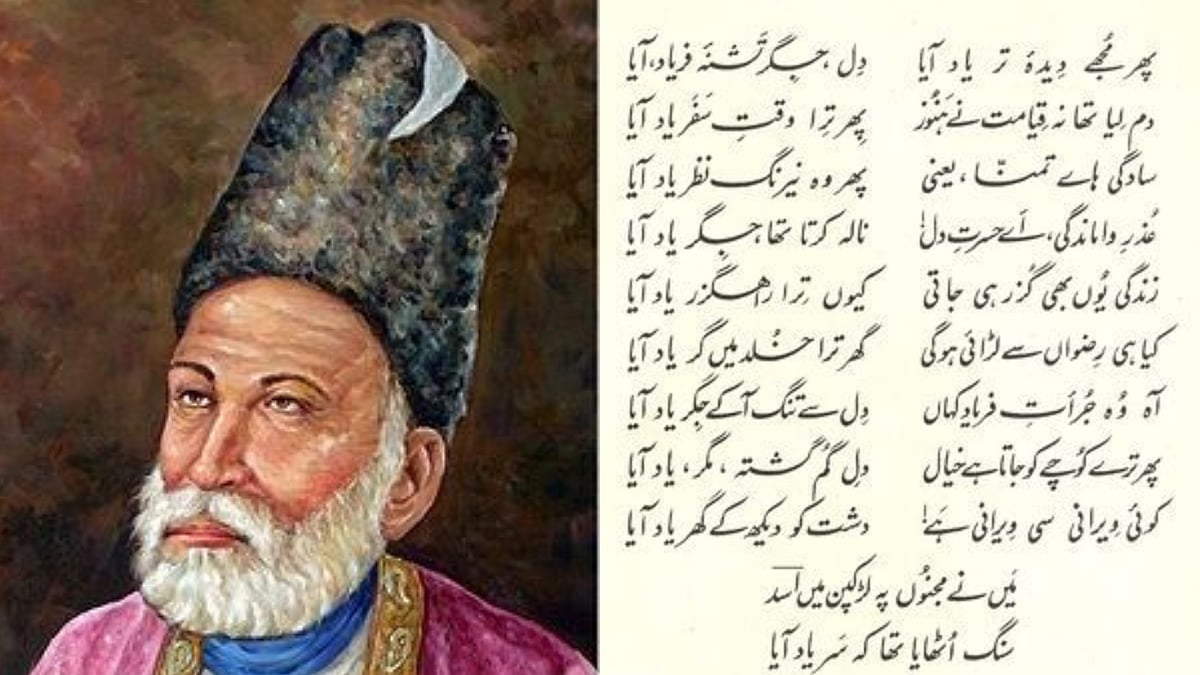 پھر مُجھے دِیدۂ تر یاد آیا دِل، جِگر تَشنۂ فریاد، آیا
دم لِیا تھا نہ قِیامت نے ہَنُوز پِھر تِرا وقتِ سَفَر یاد آیا
سادگی ہاے تمنّا، یعنی پھر وہ نیرنگِ نظر یاد آیا
عُذرِ واماندگی، اَے حسرتِ دل! نالہ کرتا تھا، جِگر یاد آیا
زندگی یُوں بھی گُزر ہی جاتی کیوں تِرا راہگزر یاد آیا
کیا ہی رِضواں سے لڑائی ہوگی گھر ترا خُلد میں گر یاد آیا
آہ وُہ جُرأتِ فریاد کہاں دِل سے تنگ آ کے جِگر یاد آیا
پھر ترے کُوچے کو جاتا ہے خیال دلِ گُم گشتہ، مگر، یاد آیا
کوئی وِیرانی سی وِیرانی ہَے! دشت کو دیکھ کے گھر یاد آیا
مَیں نے مجنُوں پہ لڑکپن میں اسد
سنگ اُٹھایا تھا کہ سَر یاد آیا